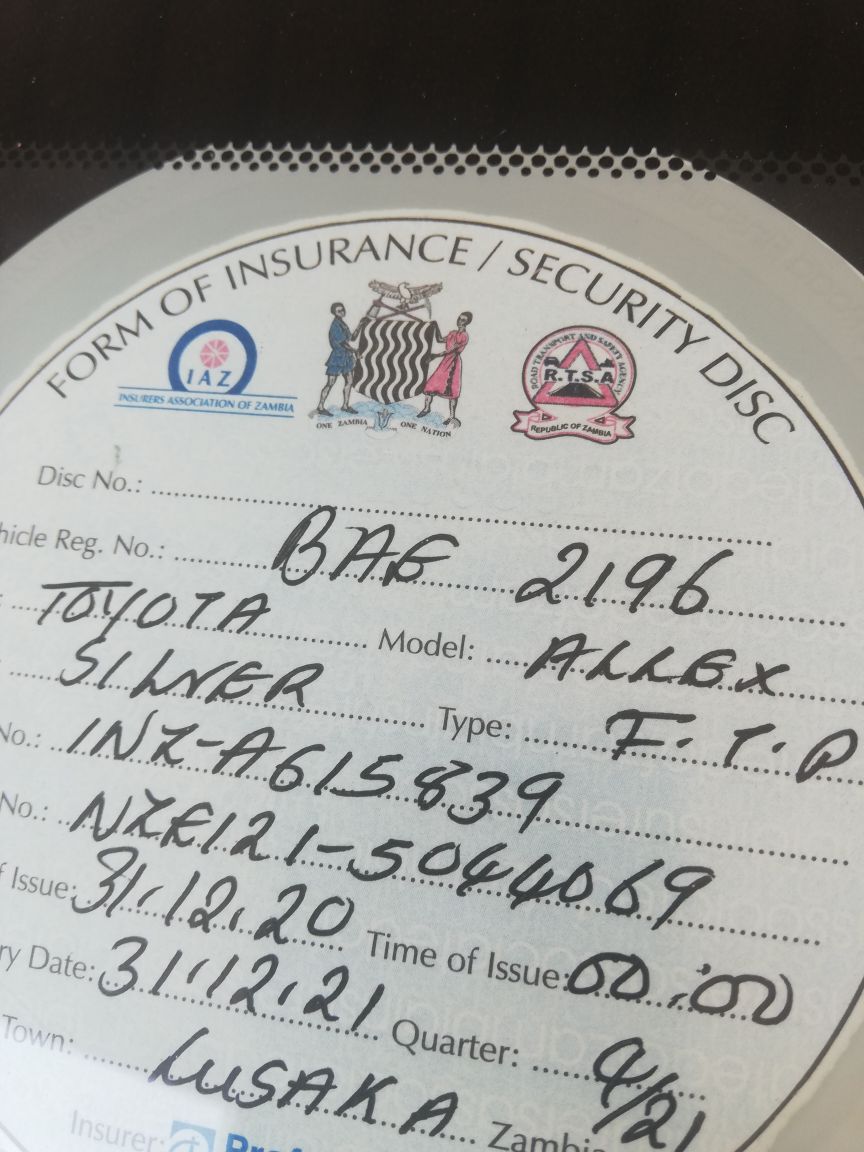 FORM OF INSURANCE / SECURITY DISC
IAZ
INSURERS ASSOCIATION OF ZAMBIA
ONE ZAMBIA ONE NATION
ROAD TRANSPORT AND SAFETY AGENCY
R.T.S.A
REPUBLIC OF ZAMBIA
Disc No.:
hicle Reg. No.: BAE 2196
: TOYOTA Model: ALLEX
SILVER Type: F.T.P
No.: INZ-A615839
No.: NZE121-5044069
f Issue: 31.12.20 Time of Issue: 00:00
ry Date: 31.12.21 Quarter: 4/21
Town: LUSAKA Zambia
Insurer: